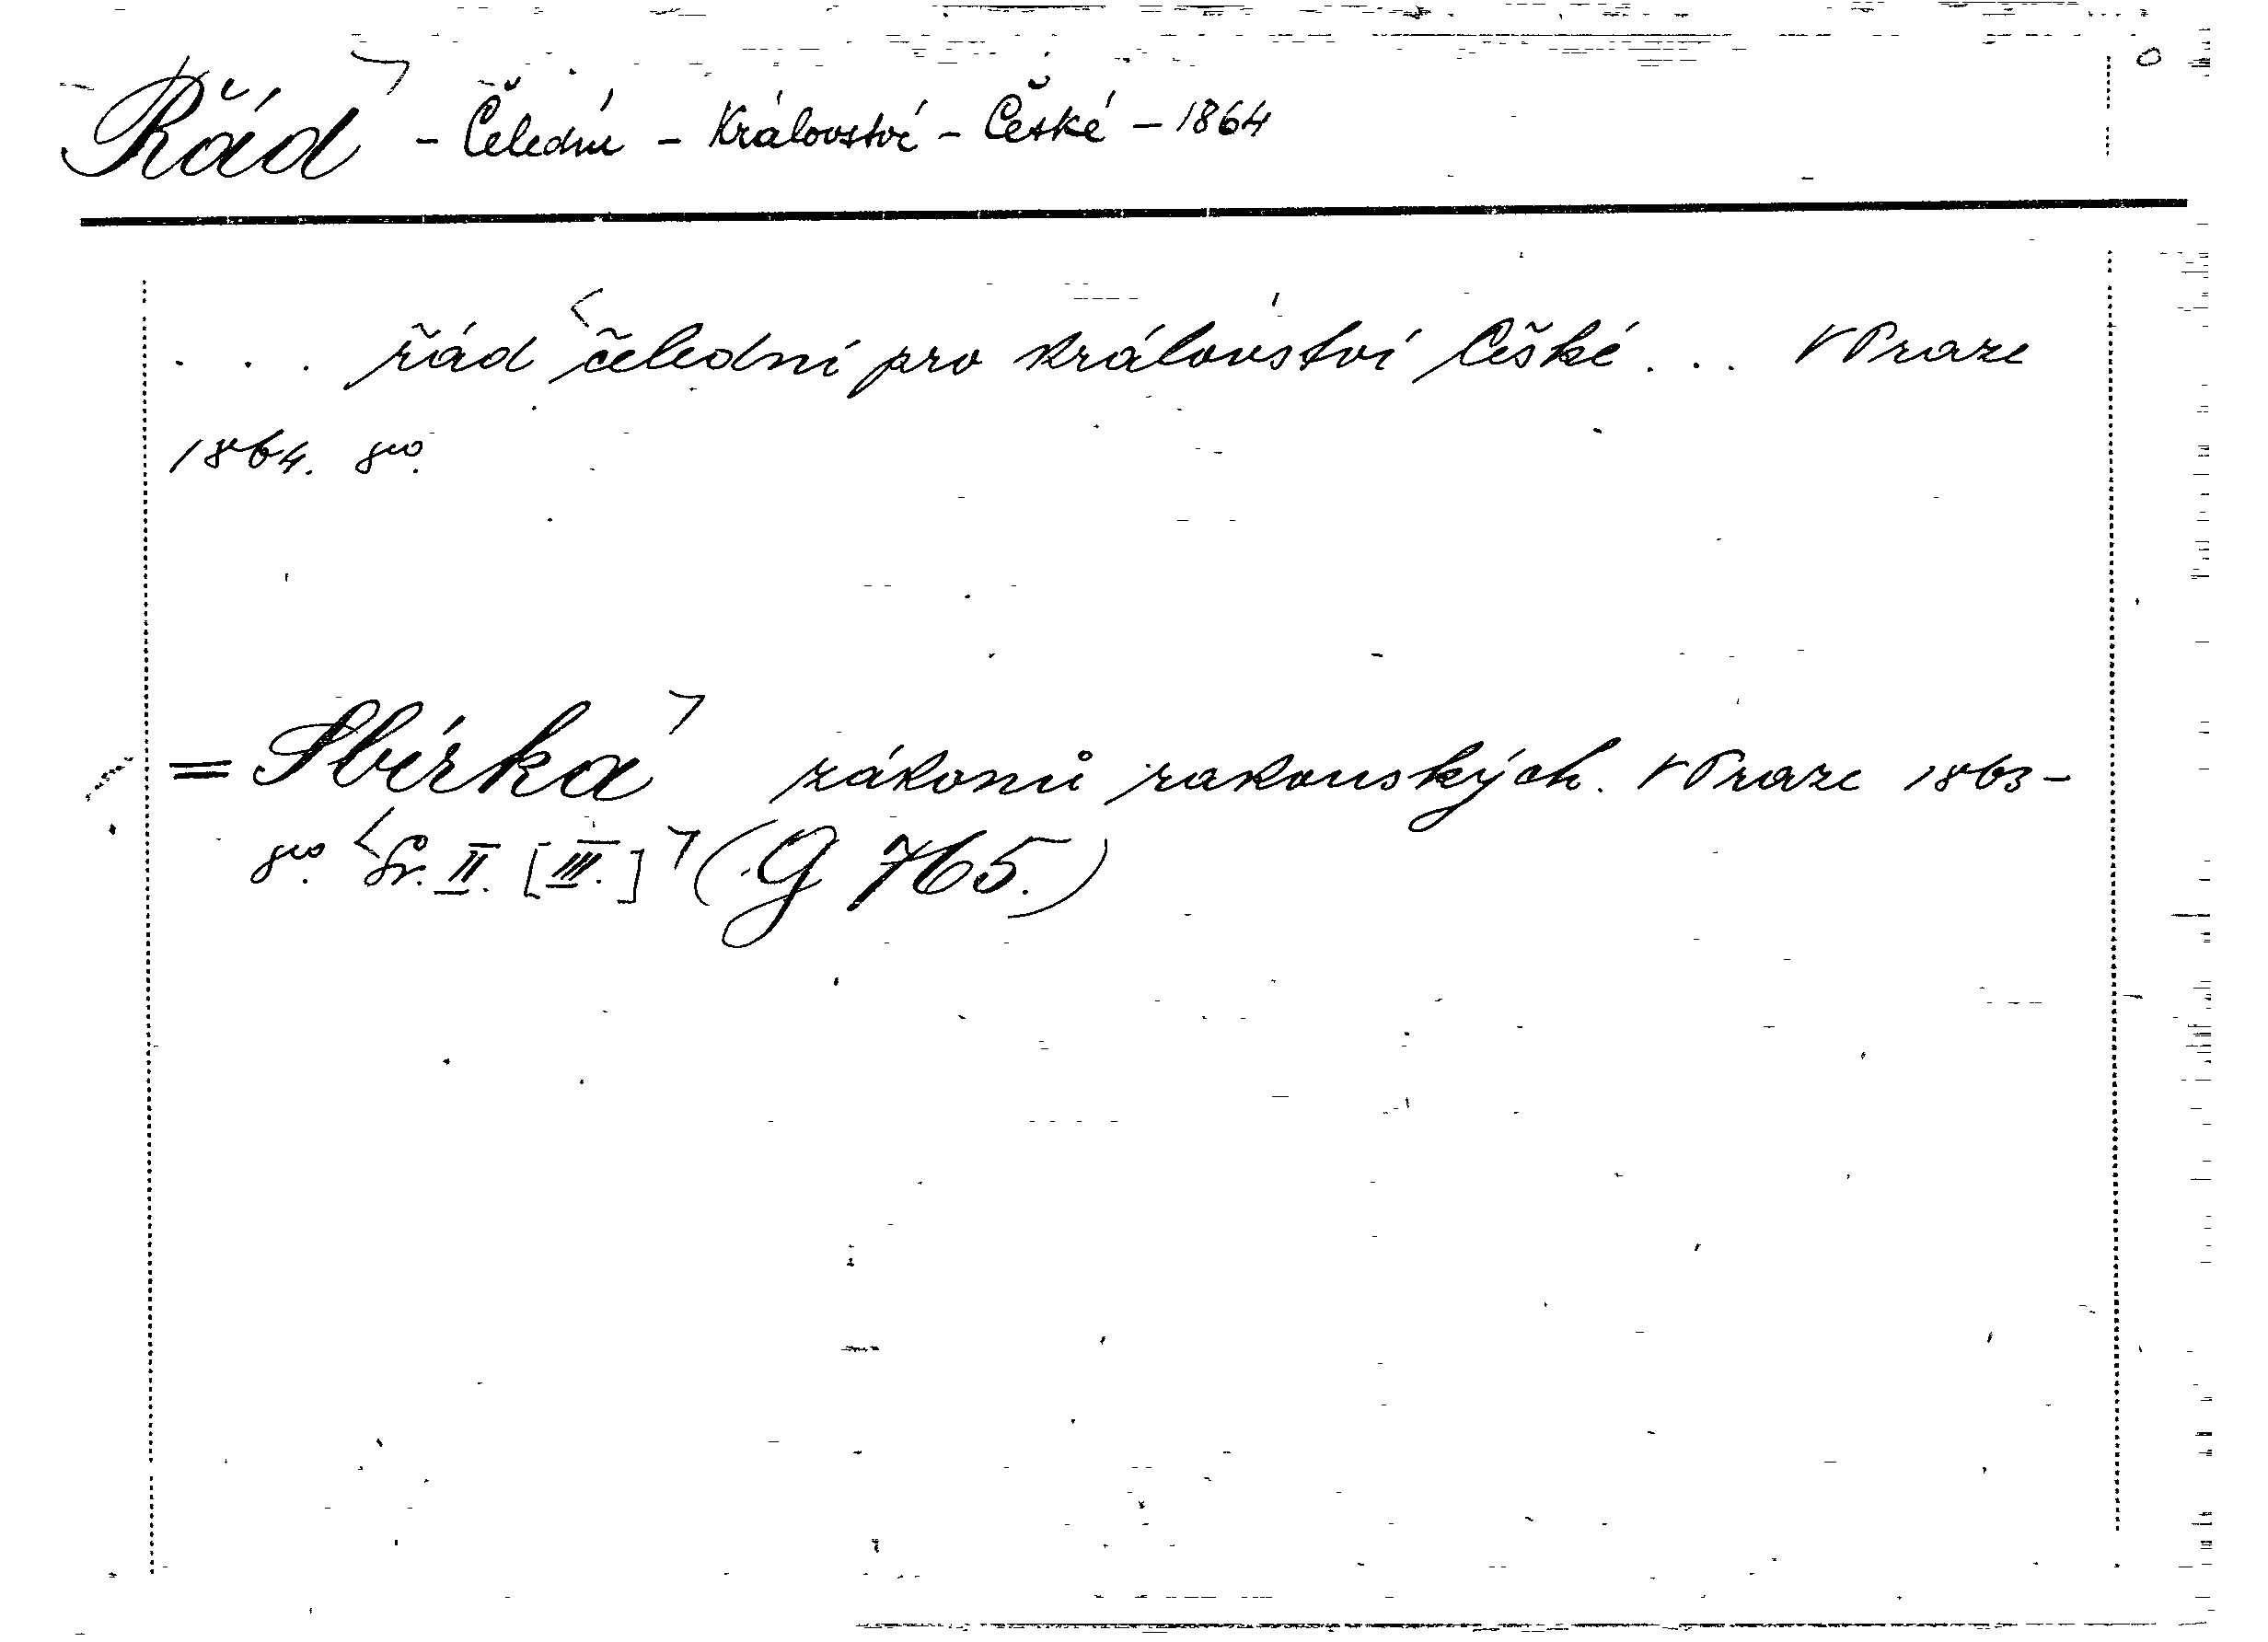 Řád ⌝ - Čelední - Království - České - 1864
. . . řád <čelední pro království České . . . V Praze
1864. 8vo.
= Sbírka ⌝ zákonů rakouských. V Praze 1863-
8vo. <Sv. II. [III.] ⌝ (G 765.)